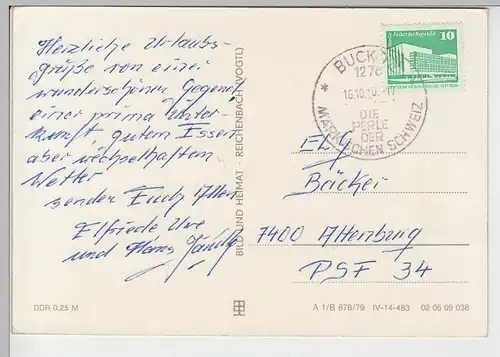 Herzliche Urlaubs-
grüße von einer
wunderschönen Gegend
einer prima Unter-
kunft, gutem Essen
aber wechselhaften
Wetter
senden Euch Allen
Elfriede Uwe
und Hans
BILD UND HEIMAT · REICHENBACH (VOGTL)
10
BUCKOW
1276
16.10.
DIE
PERLE
DER
MÄRKISCHEN SCHWEIZ
Bäcker
7400 Altenburg
PSF 34
DDR 0,25 M
A 1/B 678/79 IV-14-483 02 05 09 038